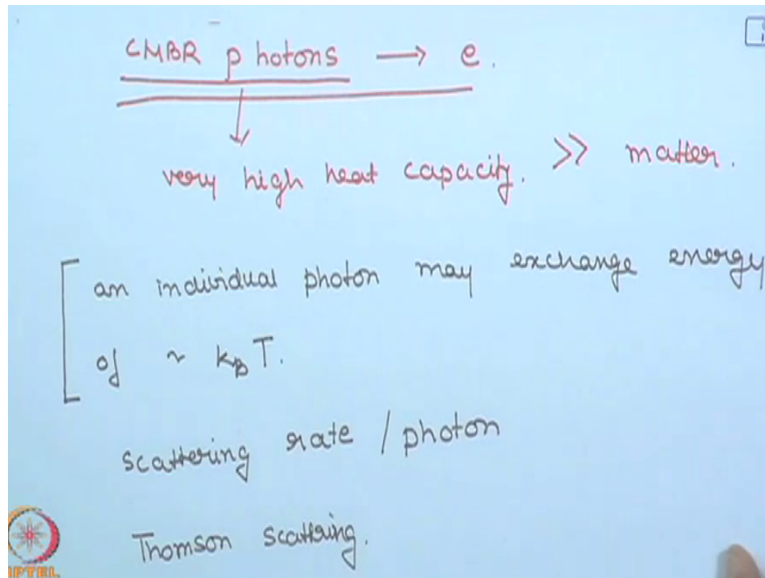 CMBR photons → e.
very high heat capacity. >> matter.
an individual photon may exchange energy
of ~ k_B T.
scattering rate / photon
Thomson scattring.
NPTEL